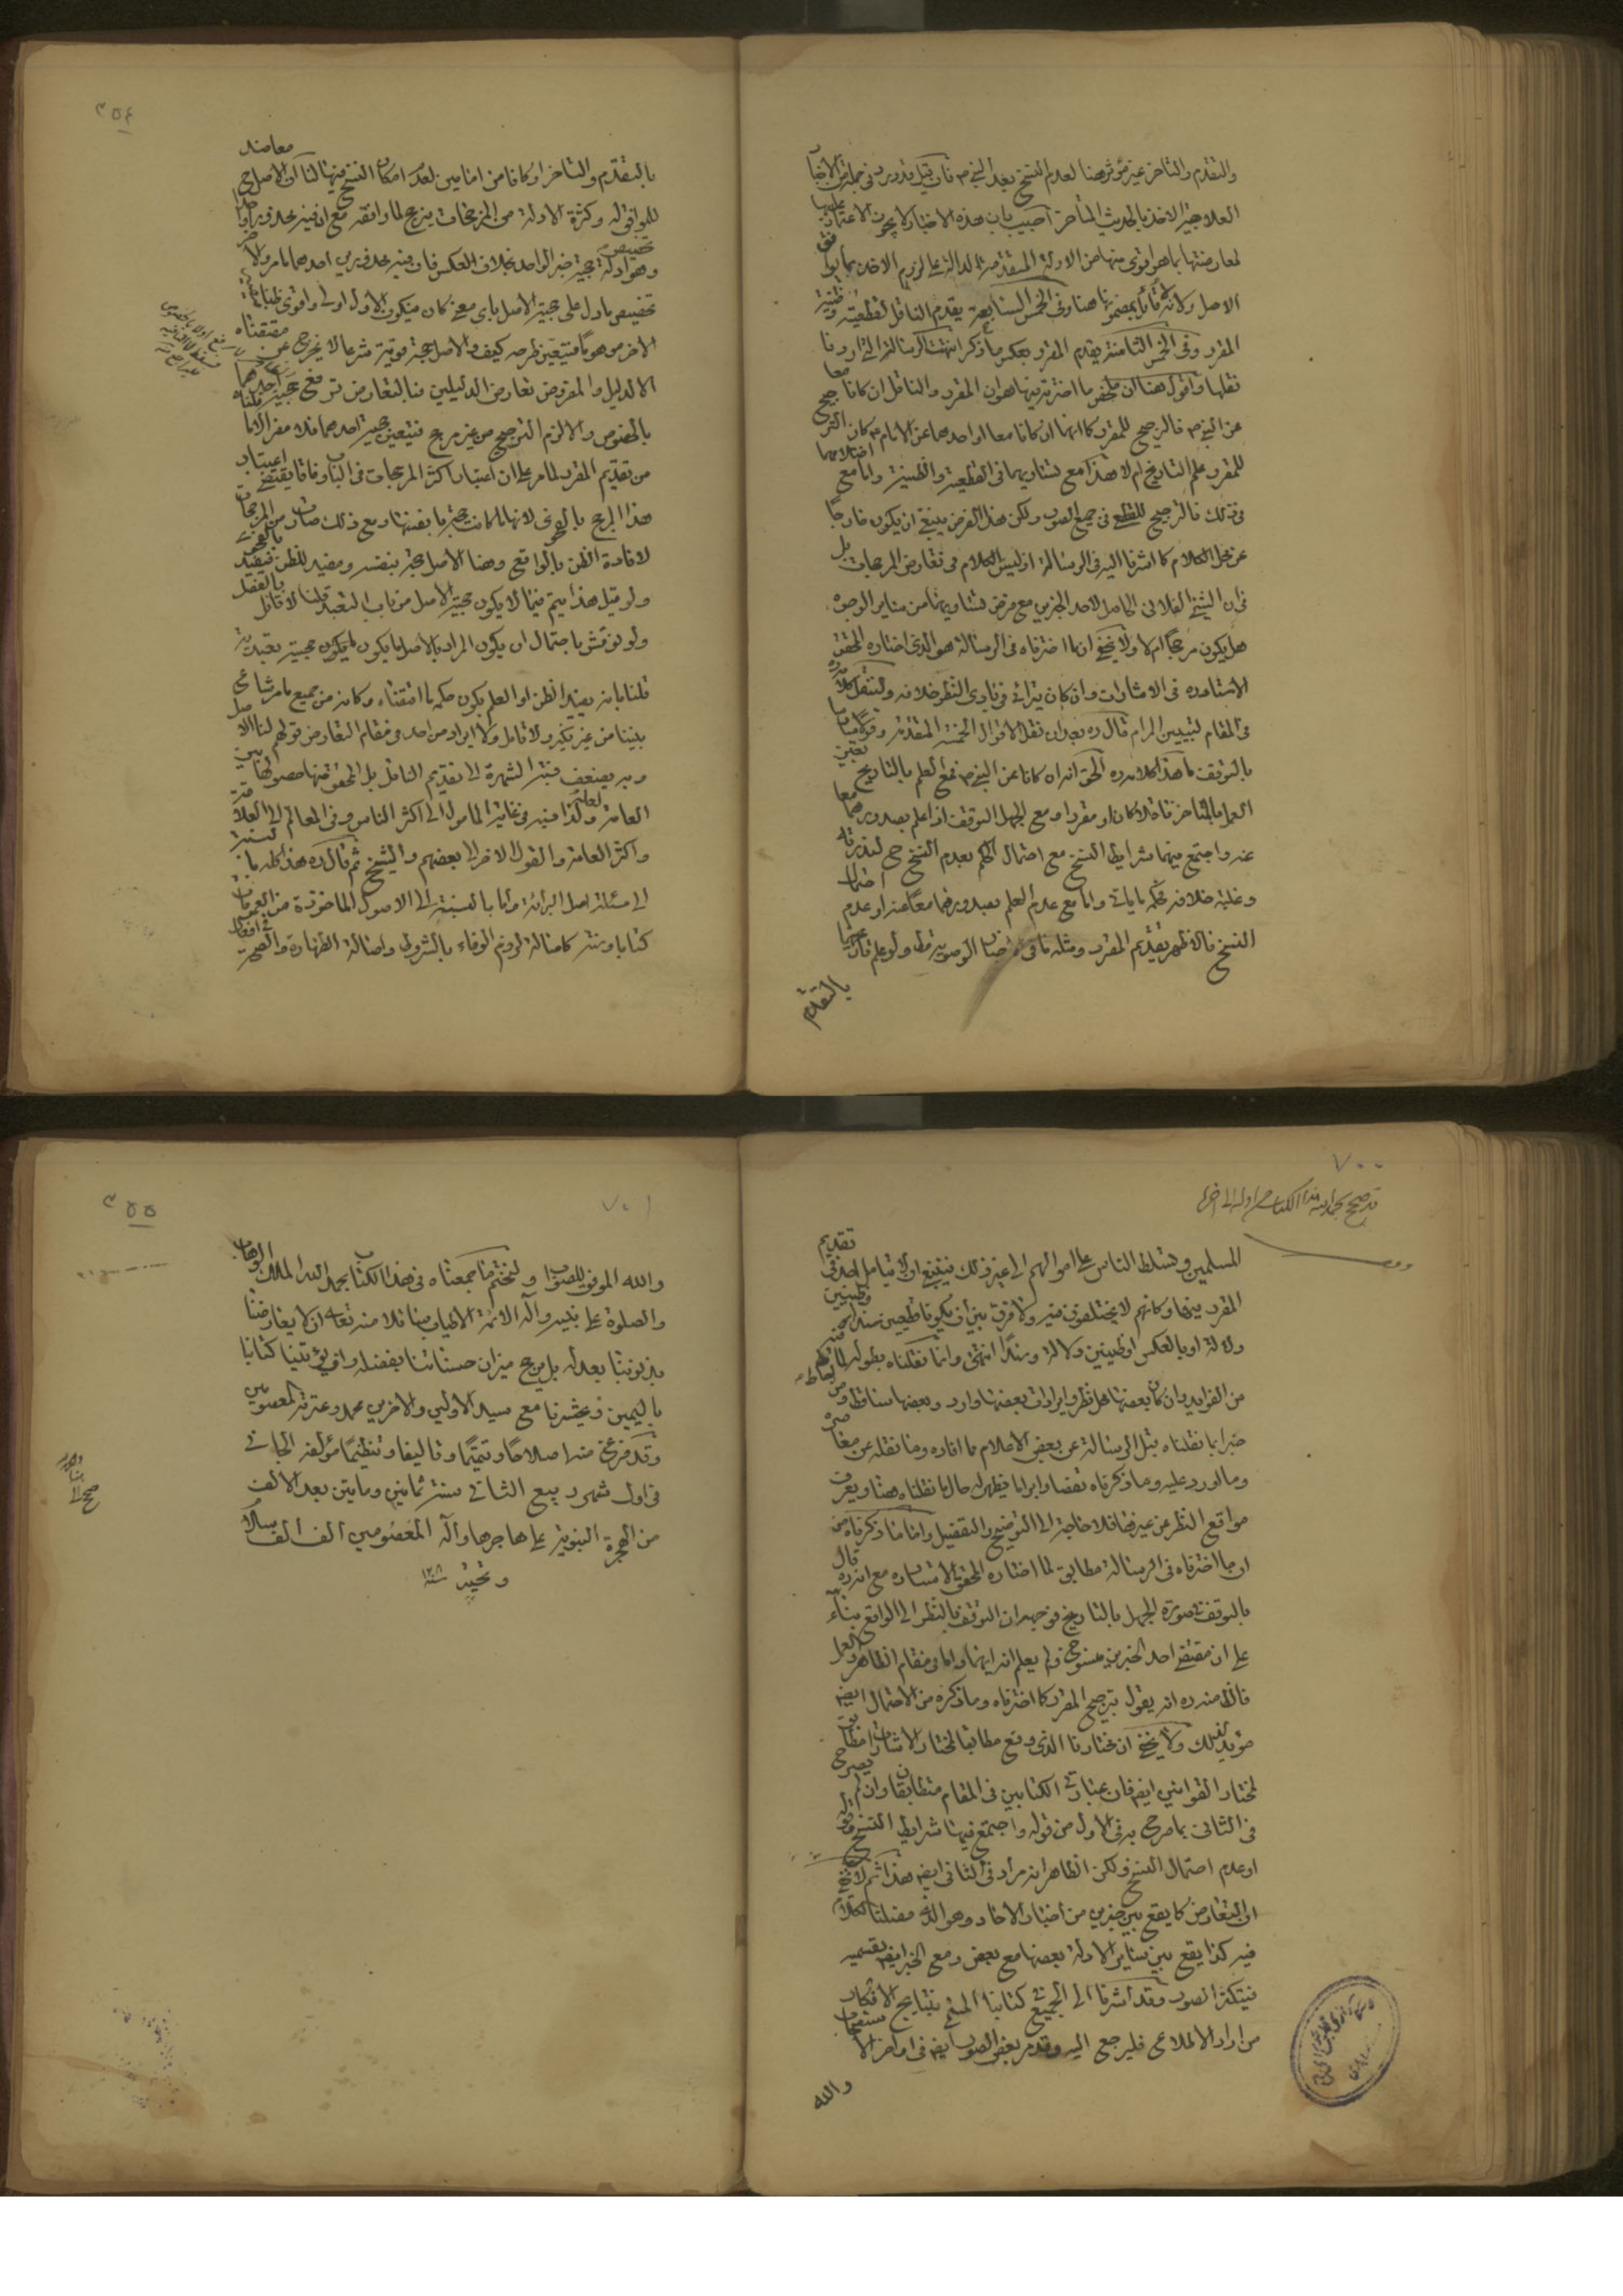 والتقدم والتاخر غير مؤثر هنا لعدم النسخ بعد النبي ص فان قيل قد ورد في جملة من الاخبار
العلاجية الاخذ بالحديث المتأخر اجيب بان هذه الاخبار لا يجوز الاعتماد عليها
لمعارضتها بما هو اقوى منها من الادلة المتقدمة الدالة على لزوم الاخذ بما يوافق
الاصل ولانه قائل بمضمونها هنا وفي الخمس السابعة يقدم الناقل لقطعيته وظنية
المقرر وفي الخمس الثامنة يقدم المقرر بعكس ما ذكر انتهت الرسالة التي اردنا
نقلها واقول هنا ان ملخص ما اخترته فيها هو ان المقرر والناقل ان كانا معا
عن النبي ص فالترجيح للمقرر كما انهما ان كانا معا او احدهما عن الامام ع كان الترجيح
للمقرر علم التاريخ ام لا هذا مع تساويهما في القطعية والظنية واما مع اختلافهما
في ذلك فالترجيح للقطع في جميع الصور ولكن هذا الفرض ينبغي ان يكون خارجا
عن محل الكلام كما اشرنا اليه في الرسالة اذ ليس الكلام في تعارض المرجحات بل
في ان الشيئ الفلاني الحاصل لاحد الخبرين مع فرض تساويهما من ساير الوجوه
هل يكون مرجحا ام لا ولا يخفى ان ما اخترناه في الرسالة هو الذي اختاره المحقق
الاستاد ره في الاشارات وان كان يترائى في بادي النظر خلافه ولننقل كلامه ره
في المقام لتبيين المرام قال ره بعد ان نقل الاقوال الخمسة المتقدمة
بالتوقف ما هذا كلامه ره الحق انه ان كانا عن النبي ص فمع العلم بالتاريخ يتعين
العمل بالمتاخر ناقلا كان او مقررا ومع الجهل التوقف اذا علم بصدورهما معا
عنه واجتمع فيهما شرايط النسخ مع احتمال الحكم بعدم النسخ ح لندرته
وغلبة خلافه فحكمه ما ياتي واما مع عدم العلم بصدورهما معا عنه او عدم احتمال
النسخ فالاظهر تقديم المقرر ومثله ما في اخبار الوصية مطلقا ولو علم تاريخها
بالتقدم
٣٥٤
بالتقدم والتاخر او كانا من امامين لعدم امكان النسخ فيها لنا ان الاصل ح معاضد
للموافق له وكثرة الادلة من المرجحات يرجح لما وافقه مع ان فيه محذورا واحدا
وهو ادلة حجية خبر الواحد بخلاف العكس فان فيه محذورين احدهما ما مر والاخر تخصيص
تخصيص ما دل على حجية الاصل باي معنى كان فيكون الاول اولى واقوى ظنا
الاخر موهوما فيتعين طرحه كيف والاصل حجة قوية شرعا لا يخرج عن مقتضاه
الا لدليل والمفروض تعارض الدليلين فبالتعارض ترتفع حجية احدهما
بالخصوص والا لزم الترجيح من غير مرجح فيتعين حجية احدهما فلا مفر الا ما قلناه
من تقديم المقرر لما مر على ان اعتبار اكثر المرجحات في الباب وفاقا يقتضي اعتبار
هذا المرجح بالفحوى لانها ما كانت حجة بانفسها ومع ذلك صارت من المرجحات
لافادة الظن بالواقع وهنا الاصل حجة بنفسه ومفيد للظن فيفيد بالفحوى
ولو قيل هذا يتم فيما لا يكون حجية الاصل من باب التعبد قلنا لا قائل بالفصل
ولو نوقش باحتمال ان يكون المراد بالاصل ما يكون حجيته تعبدية
قلنا بانه يفيد الظن او العلم بكون حكمه ما اقتضاه وكانه من جميع ما مر شاع
بيننا من غير نكير ولا تامل ولا ايراد من احد في مقام التعارض قولهم لنا الاصل
وبه يضعف نسبة الشهرة الى تقديم الناقل بل المحقق منها حصولها بين
العامة ولعله لذا نسبه في غاية المامول الى اكثر الناس وفي المعالم الى العلامة
واكثر العامة والقول الاخر الى بعضهم والشيخ ثم قال ره هذا كله بالنسبة
الى مسئلة اصل البرائة واما بالنسبة الى الاصول الماخوذة من العمومات
كتابا وسنة كاصالة لزوم الوفاء بالشروط واصالة الطهارة والصحة في افعال
٧٠٠
قد صحح بحمد الله هذا الكتاب من اوله الى اخره
المسلمين وتسلط الناس على اموالهم الى غير ذلك فينبغي ان لا يتامل احد في تقديم
المقرر فيها وكانهم لا يختلفون فيه ولا فرق بين ان يكونا قطعيين سندا وظنيين
دلالة او بالعكس او ظنيين دلالة وسندا انتهى وانما نقلناه بطوله لما فيه
من الفوايد وان كان بعضها محل نظر وايرادات بعضها وارد وبعضها ساقط ومن احاط
خبرا بما نقلناه قبل الرسالة عن بعض الاعلام ما افاده وما نقله عن معاصره
وما اورد عليه وما ذكرناه نقضا وابراما فيظهر له حال ما نقلناه هنا ويعرف
مواقع النظر عن غيرها فلا حاجة الى التوضيح والتفصيل واما ما ذكرناه من
ان ما اخترناه في الرسالة مطابق لما اختاره المحقق الاستاد ره مع انه ره قال
بالتوقف في صورة الجهل بالتاريخ فوجهه ان التوقف بالنظر الى الواقع بناء
على ان مقتضى احد الخبرين منسوخ ولم يعلم انه ايهما واما في مقام الظاهر والعمل
فالظ منه ره انه يقول بترجيح المقرر كما اخترناه وما ذكره من الاحتمال ايضا
مؤيد لذلك ولا يخفى ان مختارنا الذي وقع مطابقا لمختار الاشارات مطابق
لمختار القوانين ايضا فان عبارتي الكتابين في المقام متطابقان وان لم يصرح
في الثاني بما صرح به في الاول من قوله واجتمع فيهما شرايط النسخ وقوله
او عدم احتمال النسخ ولكن الظاهر انه مراد في الثاني ايضا هذا ثم لا يخفى
ان التعارض كما يقع بين خبرين من اخبار الاحاد وهو الذي فصلنا الكلام
فيه كذا يقع بين ساير الادلة بعضها مع بعض ومع الخبر ايضا بقسميه
فيتكثر الصور وقد اشرنا الى الجميع في كتابنا المسمى بنتايج الافكار
من اراد الاطلاع فليرجع اليه وقد مر بعض الصور ايضا في اواخر الا
والله
٧٠١
٣٥٥
والله الموفق للصواب ولنختم ما جمعناه في هذا الكتاب بحمد الله الملك الوهاب
والصلوة على نبيه وآله الائمة الاطياب سائلا منه تعالى ان لا يعارضنا
بذنوبنا بعدله بل يرجح ميزان حسناتنا بفضله وان يؤتينا كتابنا
باليمين ويحشرنا مع سيد الاولين والاخرين محمد وعترته المعصومين
وقد فرغ منه اصلاحا وتتميما وتاليفا وتنظيما مؤلفه الجاني
في اول شهر ربيع الثاني سنة ثمانين وماتين بعد الالف
من الهجرة النبوية على هاجرها وآله المعصومين الف الف سلام
وتحية سنة ١٢٨٠